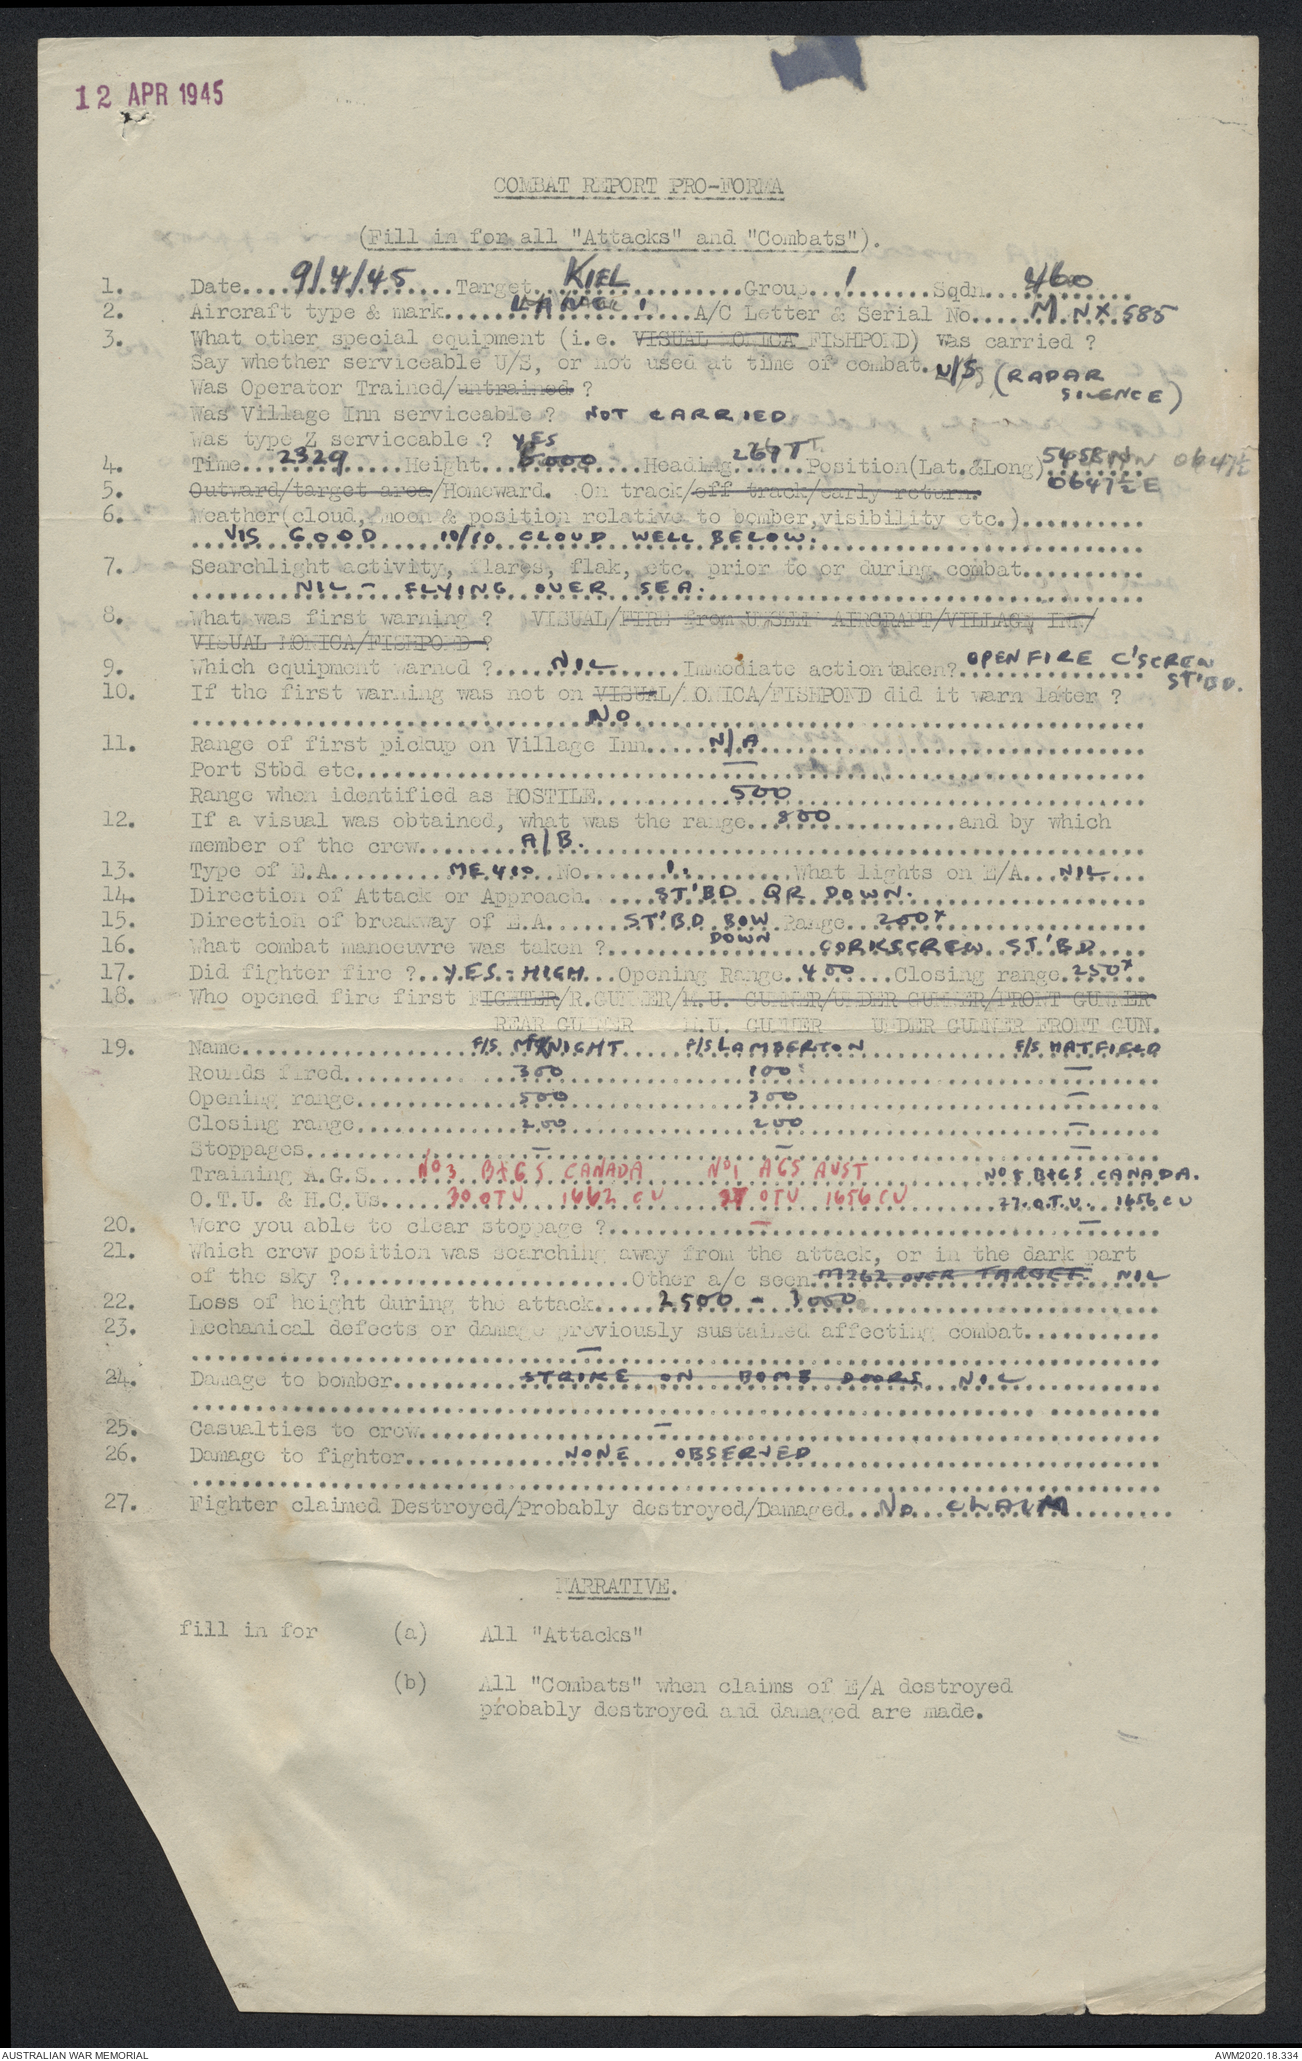 12 APR 1945
COMBAT REPORT PRO-FORMA
(Fill in for all "Attacks" and "Combats").
1. Date....9/4/45....Target....KIEL....Group...1....Sqdn....460
2. Aircraft type & mark....LANC. 1....A/C Letter & Serial No....M NX 585
3. What other special equipment (i.e. VISUAL MONICA FISHPOND) Was carried ?
Say whether serviceable U/S, or not used at time of combat. U/S (RADAR
SILENCE)
Was Operator Trained/untrained ?
Was Village Inn serviceable ? NOT CARRIED
Was type Z serviceable ? YES
4. Time....2329....Height....6000....Heading....267 T....Position(Lat.&Long) 5458 N 0647½
0647½ E
5. Outward/target area/Homeward. On track/off track/early return.
6. Weather(cloud, moon & position relative to bomber,visibility etc.)....
VIS GOOD 10/10 CLOUD WELL BELOW.
7. Searchlight activity, flares, flak, etc. prior to or during combat....
NIL - FLYING OVER SEA.
8. What was first warning ? VISUAL/FIRE from UNSEEN AIRCRAFT/VILLAGE INN/
VISUAL MONICA/FISHPOND ?
9. Which equipment warned ?....NIL....Immediate action taken?.OPEN FIRE C'SCREW
ST'BD.
10. If the first warning was not on VISUAL/MONICA/FISHPOND did it warn later ?
NO
11. Range of first pickup on Village Inn....N/A
Port Stbd etc....—
Range when identified as HOSTILE....500
12. If a visual was obtained, what was the range...800....and by which
member of the crew....A/B.
13. Type of E.A....ME 410..No....1....What lights on E/A...NIL
14. Direction of Attack or Approach....ST'BD QR DOWN.
15. Direction of breakway of E.A....ST'BD BOW Range...200x
DOWN
16. What combat manoeuvre was taken ?....CORKSCREW ST'BD
17. Did fighter fire ?..YES - HIGH...Opening Range..400...Closing range.250x
18. Who opened fire first FIGHTER/R.GUNNER/M.U. GUNNER/UNDER GUNNER/FRONT GUNNER
REAR GUNNER M.U. GUNNER UNDER GUNNER FRONT GUN.
19. Name....F/S McKNIGHT....F/S LAMBERTON....F/S HATFIELD
Rounds fired....300....100....—
Opening range....500....300....—
Closing range....200....200....—
Stoppages....—....—....—
Training A.G.S....No 3 B+GS CANADA No 1 AGS AUST No 8 B+GS CANADA.
O.T.U. & H.C.Us....30 OTU 1662 CU 27 OTU 1656 CU 27.O.T.U. 1656 CU
20. Were you able to clear stoppage ?....—....—
21. Which crew position was searching away from the attack, or in the dark part
of the sky ?....Other a/c seen M262 OVER TARGET NIL
22. Loss of height during the attack....2500 - 3000
23. Mechanical defects or damage previously sustained affecting combat....
—
24. Damage to bomber....STRIKE ON BOMB DOORS NIL
25. Casualties to crew....—
26. Damage to fighter....NONE OBSERVED
27. Fighter claimed Destroyed/Probably destroyed/Damaged...NO CLAIM
NARRATIVE.
fill in for (a) All "Attacks"
(b) All "Combats" when claims of E/A destroyed
probably destroyed and damaged are made.
AUSTRALIAN WAR MEMORIAL
AWM2020.18.334